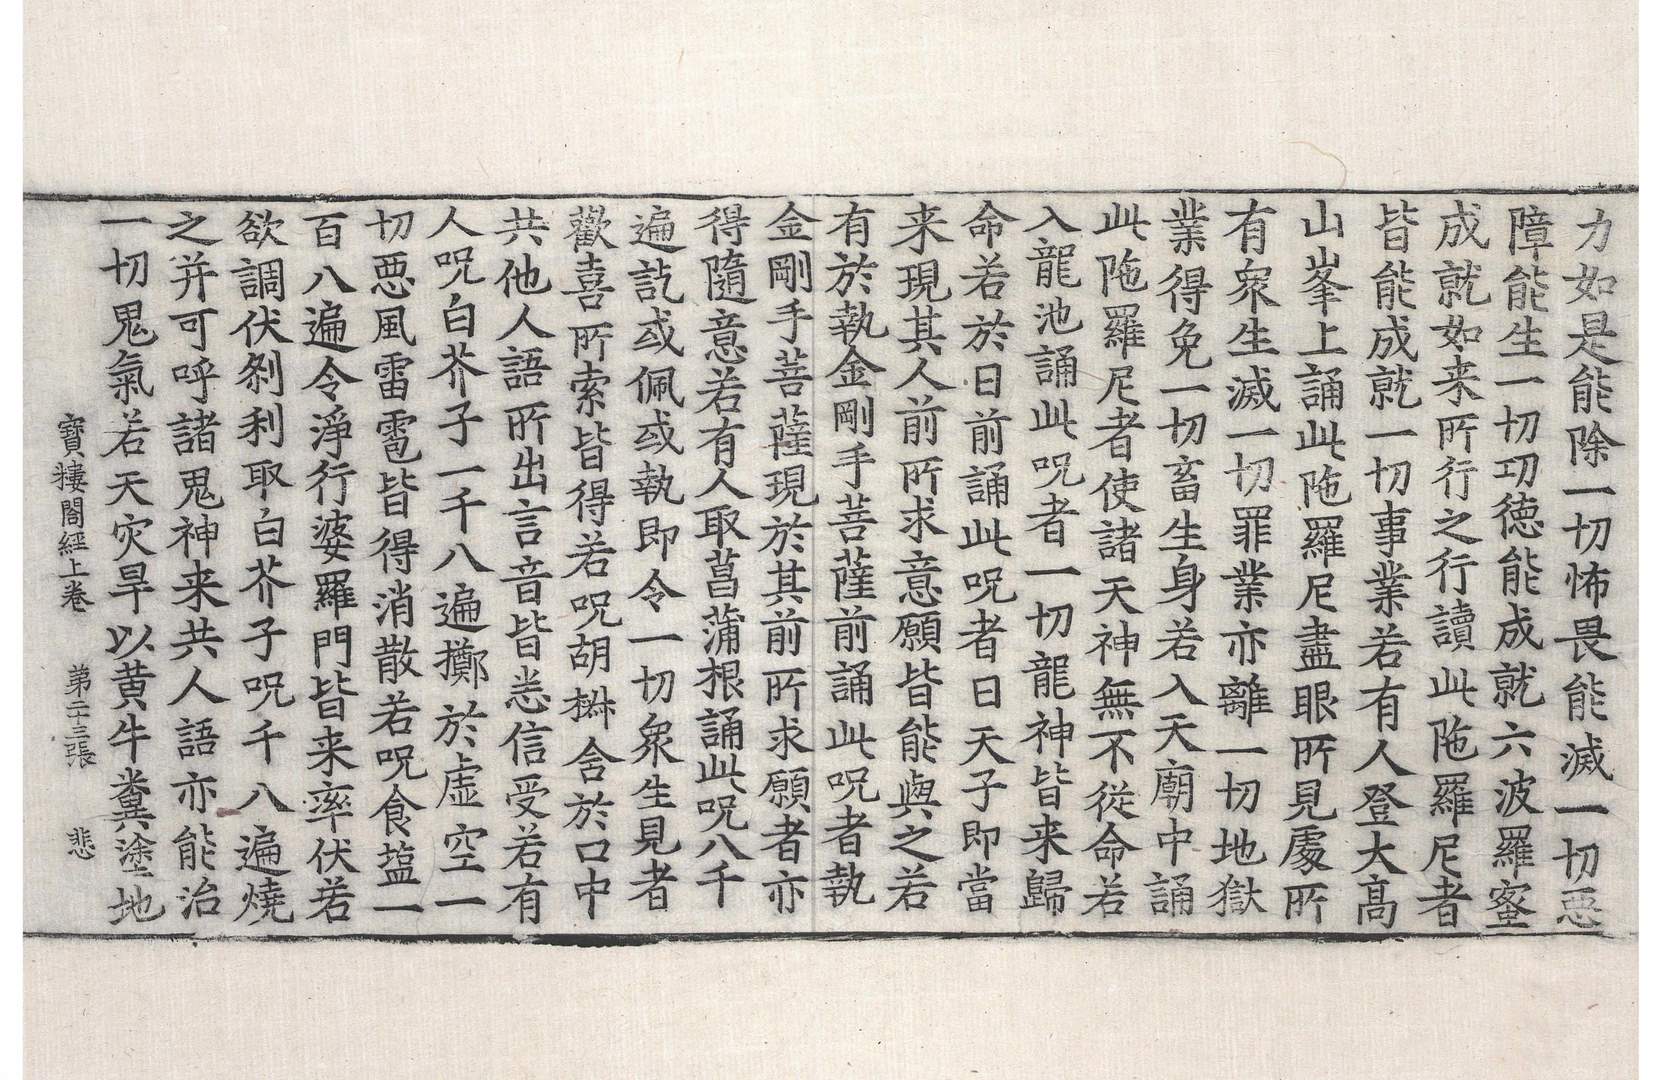 力如是能除一切怖畏能滅一切惡
障能生一切功德能成就六波羅蜜
成就如来所行之行讀此陁羅尼者
皆能成就一切事業若有人登大高
山峯上誦此陁羅尼盡眼所見處所
有衆生滅一切罪業亦離一切地獄
業得免一切畜生身若入天廟中誦
此陁羅尼者使諸天神無不從命若
入龍池誦此呪者一切龍神皆来歸
命若於日前誦此呪者日天子即當
来現其人前所求意願皆能與之若
有於執金剛手菩薩前誦此呪者執
金剛手菩薩現於其前所求願者亦
得隨意若有人取菖蒲根誦此呪八千
遍訖或佩或執即令一切衆生見者
歡喜所索皆得若呪胡椒含於口中
共他人語所出言音皆悉信受若有
人呪白芥子一千八遍擲於虛空一
切惡風雷雹皆得消散若呪食塩一
百八遍令淨行婆羅門皆来率伏若
欲調伏剎利取白芥子呪千八遍燒
之并可呼諸鬼神来共人語亦能治
一切鬼氣若天灾旱以黄牛糞塗地
寶樓閣經上卷　第二十三張　悲